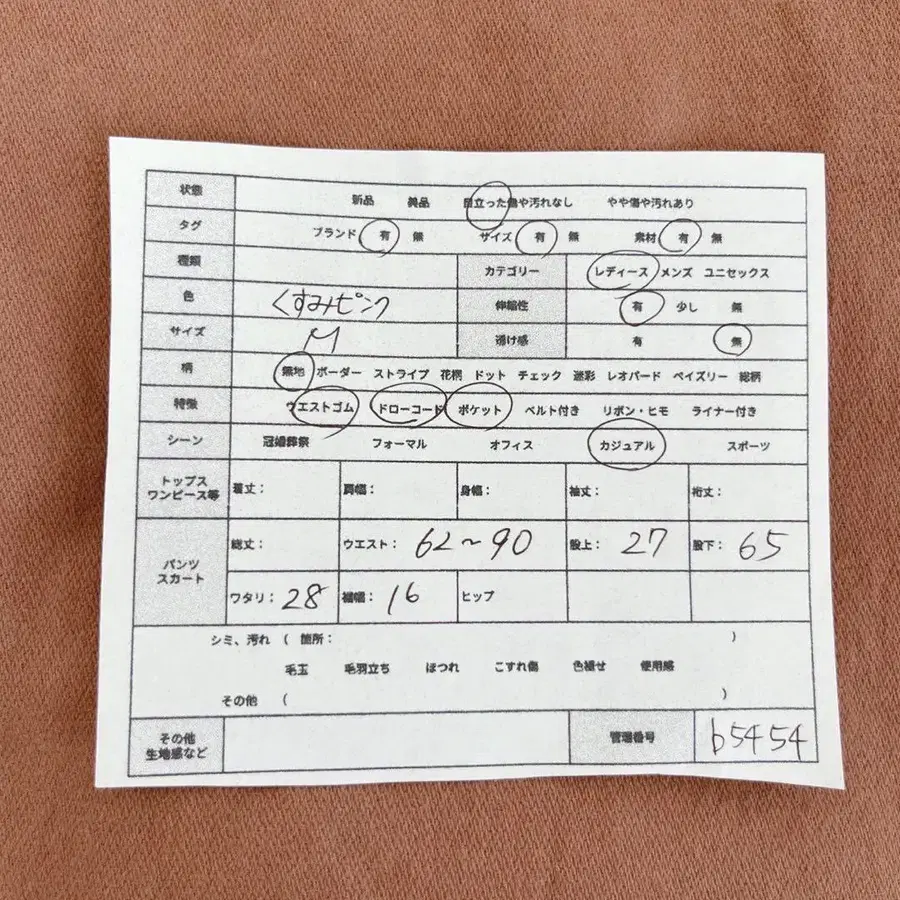 状態 新品 美品 目立った傷や汚れなし やや傷や汚れあり
タグ ブランド 有 無 サイズ 有 無 素材 有 無
種類 カテゴリー レディース メンズ ユニセックス
色 くすみピンク 伸縮性 有 少し 無
サイズ M 透け感 有 無
柄 無地 ボーダー ストライプ 花柄 ドット チェック 迷彩 レオパード ペイズリー 総柄
特徴 ウエストゴム ドローコード ポケット ベルト付き リボン・ヒモ ライナー付き
シーン 冠婚葬祭 フォーマル オフィス カジュアル スポーツ
トップス
ワンピース等 着丈: 肩幅: 身幅: 袖丈: 裄丈:
パンツ
スカート
総丈: ウエスト: 62~90 股上: 27 股下: 65
ワタリ: 28 裾幅: 16 ヒップ
シミ、汚れ ( 箇所: )
毛玉 毛羽立ち ほつれ こすれ傷 色褪せ 使用感
その他 ( )
その他
生地感など 管理番号 b5454